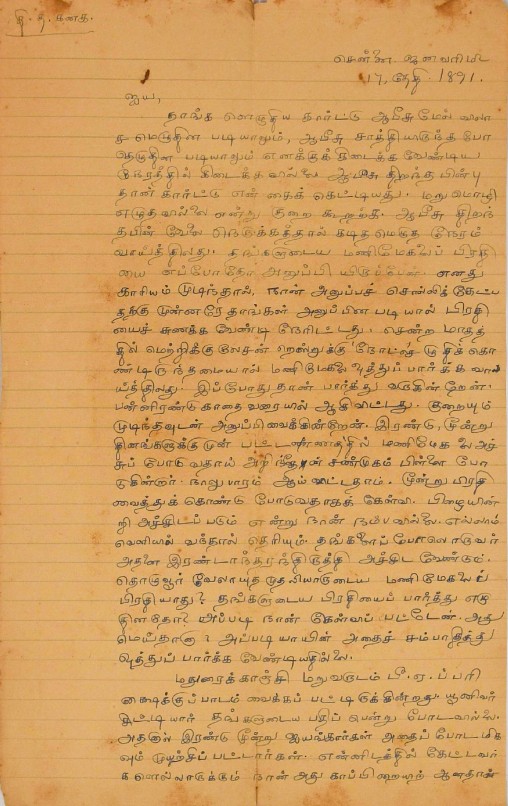 தி. த. கனக.
சென்னை ஜனவரிமீ
17, தேதி. 1891.
ஐய,
தாங்க ளெழுதிய கார்ட்டு ஆபீசுமேல் விலா
சமெழுதின படியாலும், ஆபீசு சாத்தியிருந்த போ
தெழுதின படியாலும் எனக்குக் கிடைக்க வேண்டிய
நேரத்தில் கிடைக்கவில்லை ஆபீசு திறந்த பின்பு
தான் கார்ட்டு என் கைக் கெட்டியது. மறுமொழி
எழுதவில்லை என்று குறை கூறற்க. ஆபீசு திறந்
தபின் வேலை நெருக்கத்தால் கடிதமெழுத நேரம்
வாய்த்திலது. தங்களுடைய மணிமேகலைப் பிரதி
யை எப்போதோ அனுப்பி யிருப்பேன். எனது
காரியம் முடிந்தால், நான் அனுப்பச் சொல்லிக் கேட்ப
தற்கு முன்னரே தாங்கள் அனுப்பின படியால் பிரதி
யைச் சுணக்க வேண்டி நேரிட்டது. சென்ற மாதத்
தில் மெற்றிக்குலேசன் றெஸ்றுக்கு நோட்சு எழுதிக்கொ
ண்டிருந்தமையால் மணிமேகலை ஒத்துப் பார்க்க வா
ய்த்திலது. இப்போதுதான் பார்த்து வருகின்றேன்.
பன்னிரண்டு காதை வரையில் ஆகிவிட்டது. குறையும்
முடிந்தவுடன் அனுப்பிவைக்கின்றேன். இரண்டு, மூன்று
தினங்களுக்குமுன் பட்டணத்தில் மணிமேகலை அச்
சுப் போடுவதால் அறிந்தேன் சண்முகம் பிள்ளை போ
டுகின்றார். நாலுபாரம் ஆய்விட்டதாம். மூன்று பிரதி
வைத்துக் கொண்டு போடுவதாகக் கேள்வி. பிழையின்
றி அச்சிடப் படும் என்று நான் நம்பவில்லை. எல்லாம்
வெளியில் வந்தால் தெரியும். தங்களைப் போலொருவர்
அதனை இரண்டாந்தரந்திருத்தி அச்சிட வேண்டும்.
தொழுவூர் வேலாயுத முதலியாருடைய மணிமேகலைப்
பிரதியாது? தங்களுடைய பிரதியைப் பார்த்து எழு
தினதோ? அப்படி நான் கேள்விப் பட்டேன். அது
மெய்தானா? அப்படியாயின் அதைச் சம்பாதித்து
ஒத்துப் பார்க்க வேண்டியதில்லை.
மதுரைக்காஞ்சி மறுவருடம் பீ. ஏ. ப் பரி
க்ஷைக்குப் பாடம் வைக்கப் பட்டிருக்கின்றது. யூனிவர்
சிட்டியார் தங்களுடைய பதிப் பென்று போடவில்லை.
அதனுள் இரண்டு மூன்று ஐயங்கள்கள் அதைப் போட மிக
வும் முயற்சிப் பட்டார்கள். என்னிடத்தில் கேட்டவர்
களெல்லாருக்கும் நான் அது காப்பிறைற் ஆனதால்